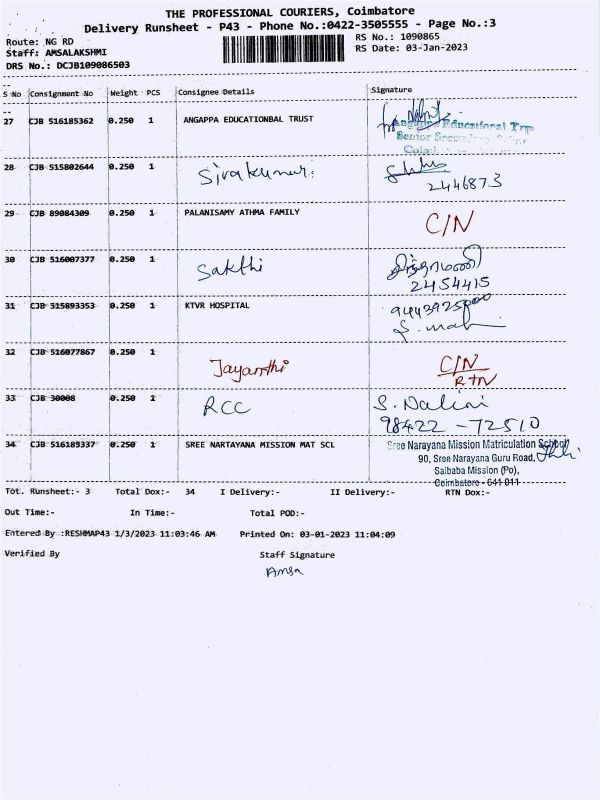 THE PROFESSIONAL COURIERS, Coimbatore
Delivery Runsheet - P43 - Phone No.:0422-3505555 - Page No.:3
Route: NG RD
RS No.: 1090865
Staff: AMSALAKSHMI
RS Date: 03-Jan-2023
DRS No.: DCJB109086503
S No Consignment No Weight PCS Consignee Details Signature
27 CJB 516185362 0.250 1 ANGAPPA EDUCATIONBAL TRUST
Educational
Senior
28 CJB 515802644 0.250 1 Sivakumar
2446873
29 CJB 89084309 0.250 1 PALANISAMY ATHMA FAMILY C/N
30 CJB 516007377 0.250 1 Sakthi
2454415
31 CJB 315893353 0.250 1 KTVR HOSPITAL
32 CJB 516077867 0.250 1 Jayanthi C/N
RTN
33 CJB 30008 0.250 1 RCC S. Nalini
98422 - 72510
34 CJB 516185337 0.250 1 SREE NARTAYANA MISSION MAT SCL Sree Narayana Mission Matriculation School
90, Sree Narayana Guru Road,
Saibaba Mission (Po),
Coimbatore - 641 011
Tot. Runsheet:- 3 Total Dox:- 34 I Delivery:- II Delivery:- RTN Dox:-
Out Time:- In Time:- Total POD:-
Entered By :RESHMAP43 1/3/2023 11:03:46 AM Printed On: 03-01-2023 11:04:09
Verified By Staff Signature
Amsa